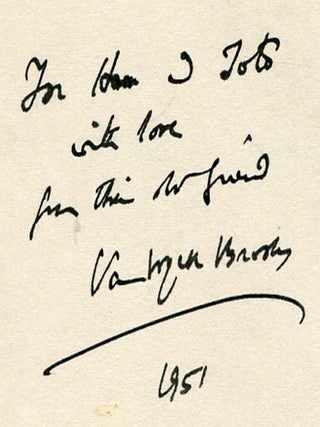 For Ham & Tota
with love
from their old friend
Van Wyck Brooks
1951